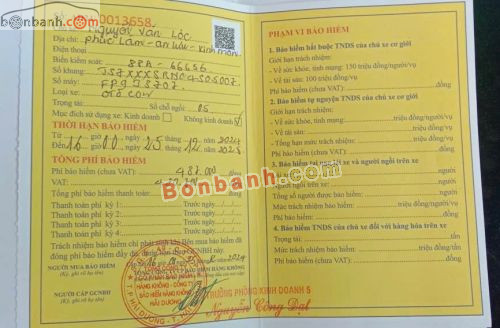 0013658
Nguyễn Văn Lộc
Địa chỉ: Phúc Lâm - An Lưu - Kinh Môn
Điện thoại
Biển kiểm soát:
Số khung:
Số máy:
Loại xe: ôtô con
Trọng tải: Số chỗ ngồi: 05
Mục đích sử dụng xe: Kinh doanh Không kinh doanh
THỜI HẠN BẢO HIỂM
Từ giờ 25 tháng 12 2024
Đến 16 giờ 00 25 tháng 12 2025
TỔNG PHÍ BẢO HIỂM
Phí bảo hiểm (chưa VAT): đồng
VAT: đồng
Tổng phí bảo hiểm thanh toán: đồng
Thanh toán phí kỳ 1: Trước ngày
Thanh toán phí kỳ 2: Trước ngày
Thanh toán phí kỳ 3: Trước ngày
Thanh toán phí kỳ 4: Trước ngày
Trách nhiệm bảo hiểm chỉ phát sinh khi Bên mua bảo hiểm đã
đóng phí bảo hiểm đầy đủ
NGƯỜI MUA BẢO HIỂM
(Ký, ghi rõ họ tên)
NGƯỜI CẤP GCNBH
(Ký, ghi rõ họ tên)
BẢO HIỂM HÀNG KHÔNG
HẢI DƯƠNG
TRƯỞNG PHÒNG KINH DOANH 5
Nguyễn Công Đạt
PHẠM VI BẢO HIỂM
1. Bảo hiểm bắt buộc TNDS của chủ xe cơ giới
Giới hạn trách nhiệm:
- Về sức khỏe, tính mạng: 150 triệu đồng/người/vụ
- Về tài sản: 100 triệu đồng/vụ
Phí bảo hiểm (chưa VAT): đồng
2. Bảo hiểm tự nguyện TNDS của chủ xe cơ giới
Giới hạn trách nhiệm:
- Về sức khỏe, tính mạng: triệu đồng/người/vụ
- Về tài sản: triệu đồng/vụ
- Tổng hạn mức trách nhiệm: triệu đồng/vụ
Phí bảo hiểm (chưa VAT): đồng
3. Bảo hiểm tai nạn lái xe và người ngồi trên xe
người
người ngồi trên xe: người
Tổng số người được bảo hiểm: người
Mức trách nhiệm bảo hiểm: triệu đồng/người/vụ
Phí bảo hiểm: đồng
4. Bảo hiểm TNDS của chủ xe đối với hàng hóa trên xe
Trọng tải: tấn
Mức trách nhiệm bảo hiểm: triệu đồng/tấn
Phí bảo hiểm (chưa VAT): đồng
Bonbanh.com
Bonbanh.com
Bonbanh.com